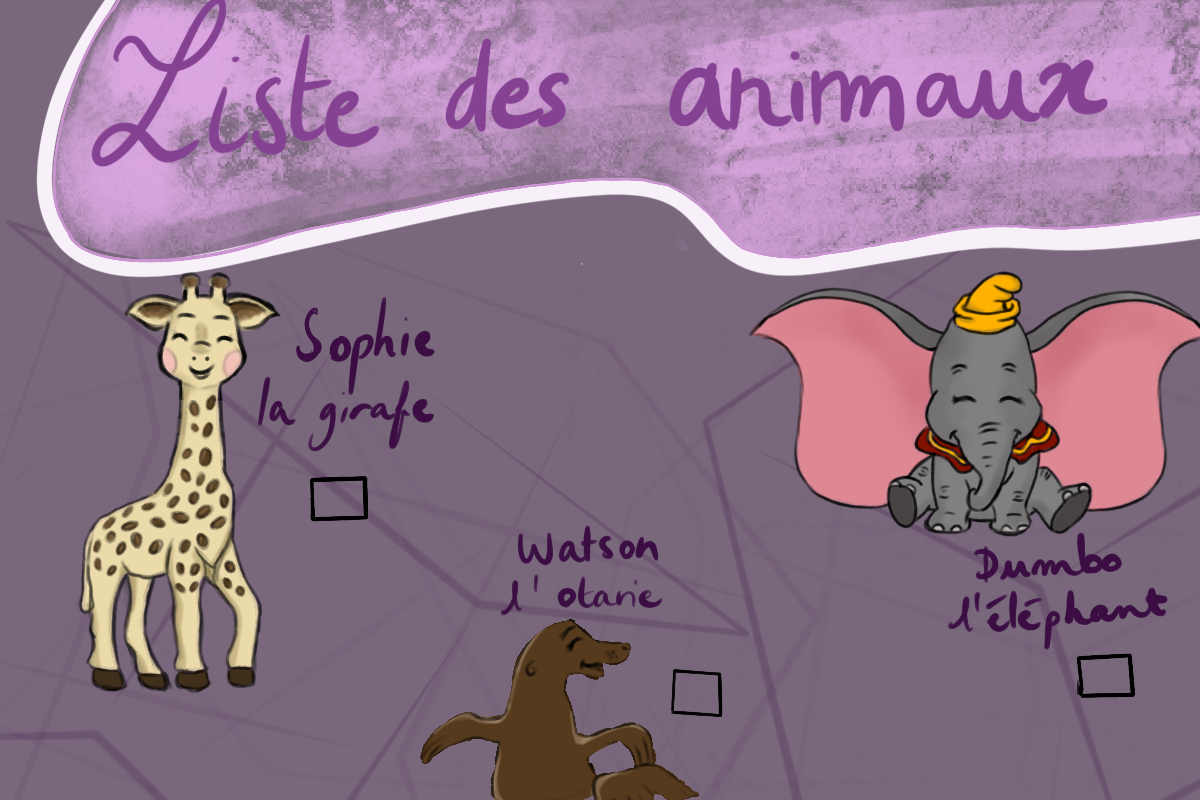 Liste des animaux
Sophie
la girafe
Watson
l'otarie
Dumbo
l'éléphant